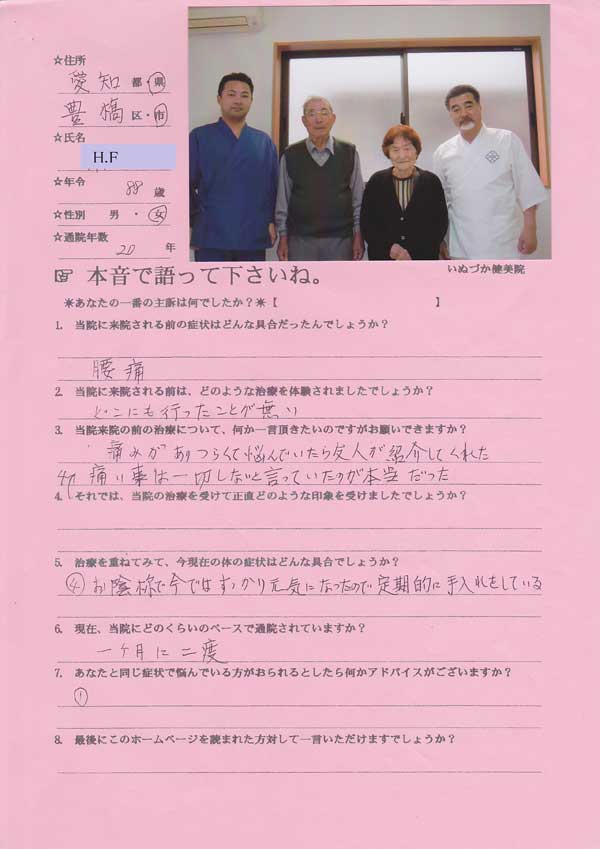 ☆住所
愛知 都・県
豊橋 区・市
☆氏名
H.F
☆年令
88 歳
☆性別 男・女
☆通院年数
20 年
いぬづか健美院
本音で語って下さいね。
＊あなたの一番の主訴は何でしたか？＊【 】
1. 当院に来院される前の症状はどんな具合だったんでしょうか？
腰痛
2. 当院に来院される前は、どのような治療を体験されましたでしょうか？
どこにも行ったことが無い
3. 当院来院の前の治療について、何か一言頂きたいのですがお願いできますか？
痛みがありつらくて悩んでいたら友人が紹介してくれた
痛い事は一切しないと言っていたのが本当だった
4. それでは、当院の治療を受けて正直どのような印象を受けましたでしょうか？
5. 治療を重ねてみて、今現在の体の症状はどんな具合でしょうか？
④お陰様で今ではすっかり元気になったので定期的に手入れをしている
6. 現在、当院にどのくらいのペースで通院されていますか？
一ヶ月に二度
7. あなたと同じ症状で悩んでいる方がおられるとしたら何かアドバイスがございますか？
①
8. 最後にこのホームページを読まれた方対して一言いただけますでしょうか？